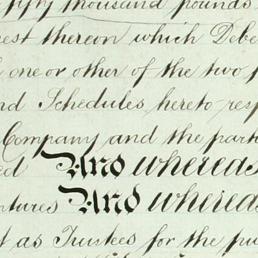 fifty thousand pounds
rest thereon which Debe
one or other of the two
nd Schedules hereto resp
Company and the part
ed And whereas
entures And whereas
t as Trustees for the pu